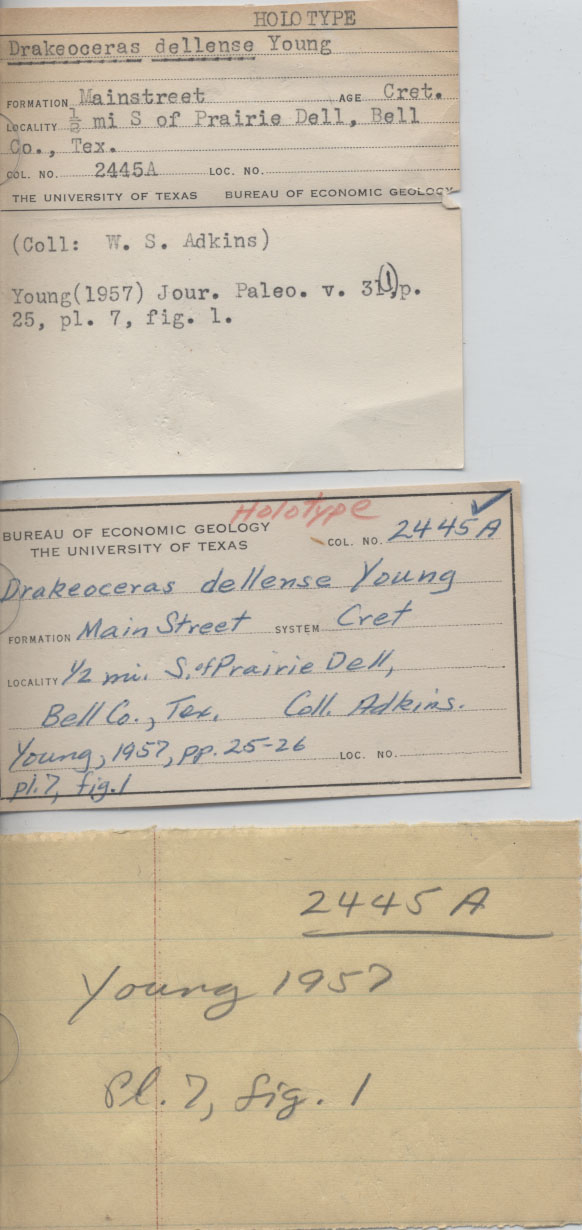 HOLOTYPE
Drakeoceras dellense Young
FORMATION Mainstreet AGE Cret.
LOCALITY ½ mi S of Prairie Dell, Bell
Co., Tex.
COL. NO. 2445A LOC. NO.
THE UNIVERSITY OF TEXAS BUREAU OF ECONOMIC GEOLOGY
(Coll: W. S. Adkins)
Young(1957) Jour. Paleo. v. 31(1),p.
25, pl. 7, fig. 1.
Holotype
BUREAU OF ECONOMIC GEOLOGY
THE UNIVERSITY OF TEXAS
COL. NO. 2445A
Drakeoceras dellense Young
FORMATION Main Street SYSTEM Cret
LOCALITY 1/2 mi. S. of Prairie Dell,
Bell Co., Tex. Coll. Adkins.
Young, 1957, pp. 25-26 LOC. NO.
pl. 7, fig. 1
2445 A
Young 1957
Pl. 7, fig. 1